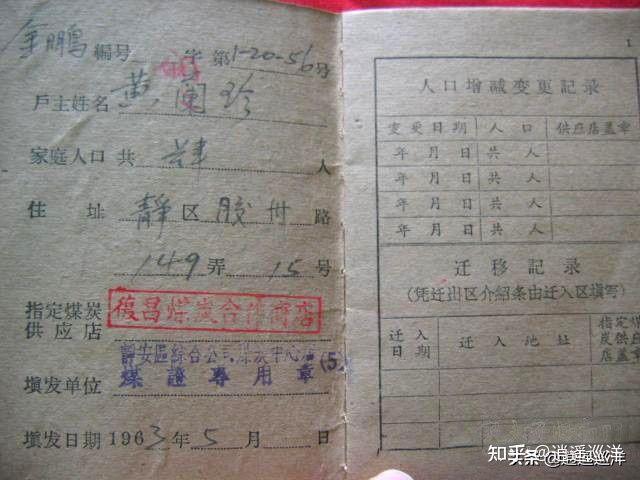 金鹏 编号 字第1-20-56号
戶主姓名 黄蘭珍
家庭人口共 肆 人
住 址 靜 区 胶州 路
149 弄 15 号
指定煤炭
供应店 復昌煤炭合作商店
靜安區綜合公司煤炭中心店(5)
填发单位 煤證專用章
填发日期 1963年 5 月 日
1
人口增减变更記录
变更日期 人口 供应店盖章
年 月 日 共 人
年 月 日 共 人
年 月 日 共 人
年 月 日 共 人
迁移記录
(凭迁出区介紹条由迁入区填写)
迁入日期 迁入地址 指定煤炭供应店盖章
知乎 @逍遥巡洋
头条 @逍遥巡洋